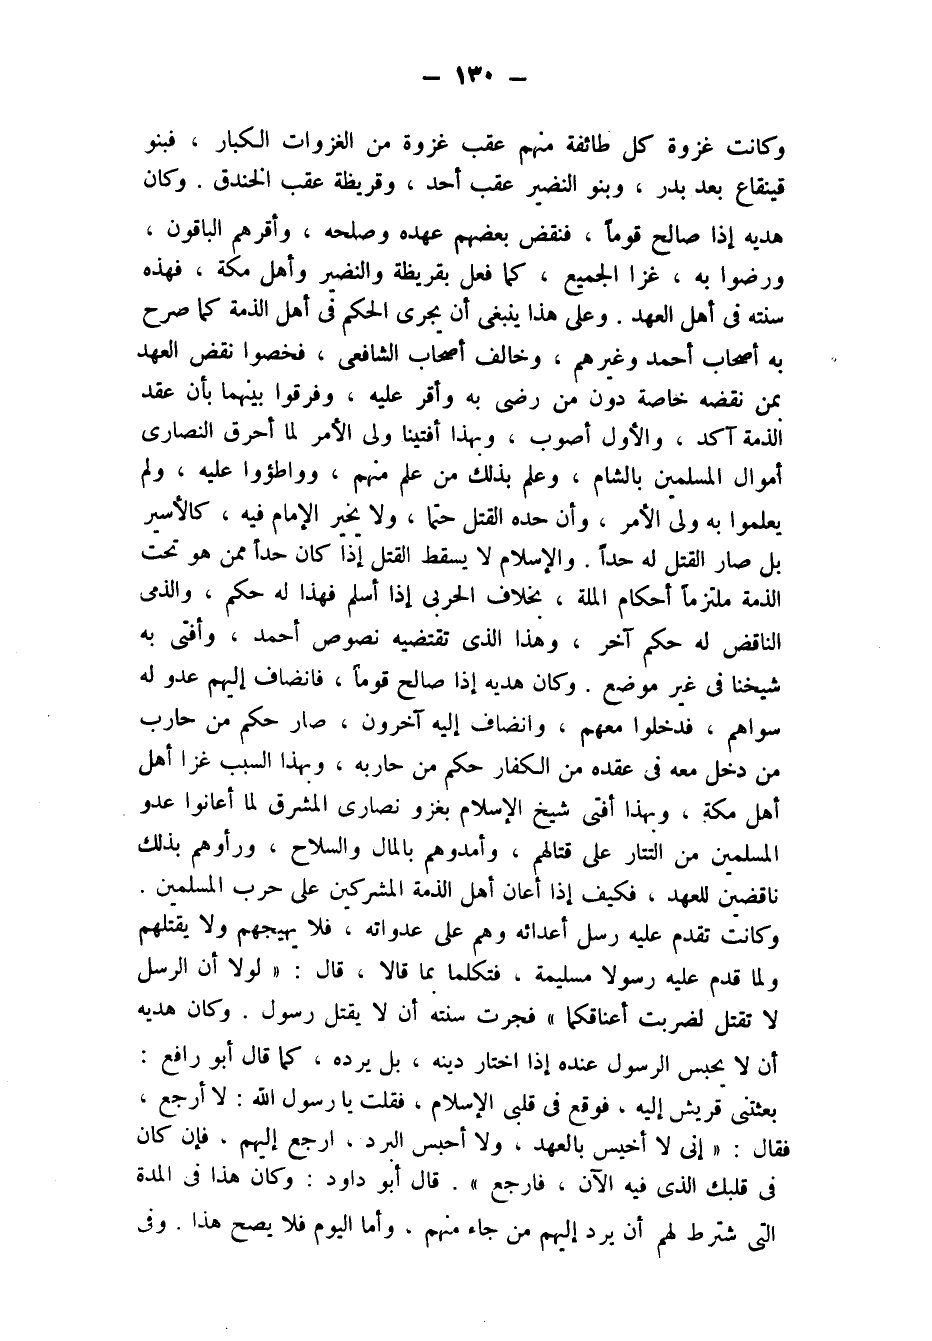 — ١٣٠ —
وكانت غزوة كل طائفة منهم عقب غزوة من الغزوات الكبار ، فبنو
قينقاع بعد بدر ، وبنو النضير عقب أحد ، وقريظة عقب الخندق . وكان
هديه إذا صالح قوماً ، فنقض بعضهم عهده وصلحه ، وأقرهم الباقون ،
ورضوا به ، غزا الجميع ، كما فعل بقريظة والنضير وأهل مكة ، فهذه
سنته فى أهل العهد . وعلى هذا ينبغى أن يجرى الحكم فى أهل الذمة كما صرح
به أصحاب أحمد وغيرهم ، وخالف أصحاب الشافعى ، فخصوا نقض العهد
بمن نقضه خاصة دون من رضى به وأقر عليه ، وفرقوا بينهما بأن عقد
الذمة آكد ، والأول أصوب ، وبهذا أفتينا ولى الأمر لما أحرق النصارى
أموال المسلمين بالشام ، وعلم بذلك من علم منهم ، وواطؤوا عليه ، ولم
يعلموا به ولى الأمر ، وأن حده القتل حتما ، ولا يخير الإمام فيه ، كالأسير
بل صار القتل له حداً . والإسلام لا يسقط القتل إذا كان حداً ممن هو تحت
الذمة ملتزماً أحكام الملة ، بخلاف الحربى إذا أسلم فهذا له حكم ، والذمى
الناقض له حكم آخر ، وهذا الذى تقتضيه نصوص أحمد ، وأفتى به
شيخنا فى غير موضع . وكان هديه إذا صالح قوماً ، فانضاف إليهم عدو له
سواهم ، فدخلوا معهم ، وانضاف إليه آخرون ، صار حكم من حارب
من دخل معه فى عقده من الكفار حكم من حاربه ، وبهذا السبب غزا أهل
أهل مكة ، وبهذا أفتى شيخ الإسلام بغزو نصارى المشرق لما أعانوا عدو
المسلمين من التتار على قتالهم ، وأمدوهم بالمال والسلاح ، ورأوهم بذلك
ناقضين للعهد ، فكيف إذا أعان أهل الذمة المشركين على حرب المسلمين .
وكانت تقدم عليه رسل أعدائه وهم على عدواته ، فلا يهيجهم ولا يقتلهم
ولما قدم عليه رسولا مسليمة ، فتكلما بما قالا ، قال : « لولا أن الرسل
لا تقتل لضربت أعناقكما » فجرت سنته أن لا يقتل رسول . وكان هديه
أن لا يحبس الرسول عنده إذا اختار دينه ، بل يرده ، كما قال أبو رافع :
بعثتنى قريش إليه ، فوقع فى قلبى الإسلام ، فقلت يا رسول الله : لا أرجع ،
فقال : « إنى لا أخيس بالعهد ، ولا أحبس البرد ، ارجع إليهم ، فإن كان
فى قلبك الذى فيه الآن ، فارجع » . قال أبو داود : وكان هذا فى المدة
التى شترط لهم أن يرد إليهم من جاء منهم ، وأما اليوم فلا يصح هذا . وفى